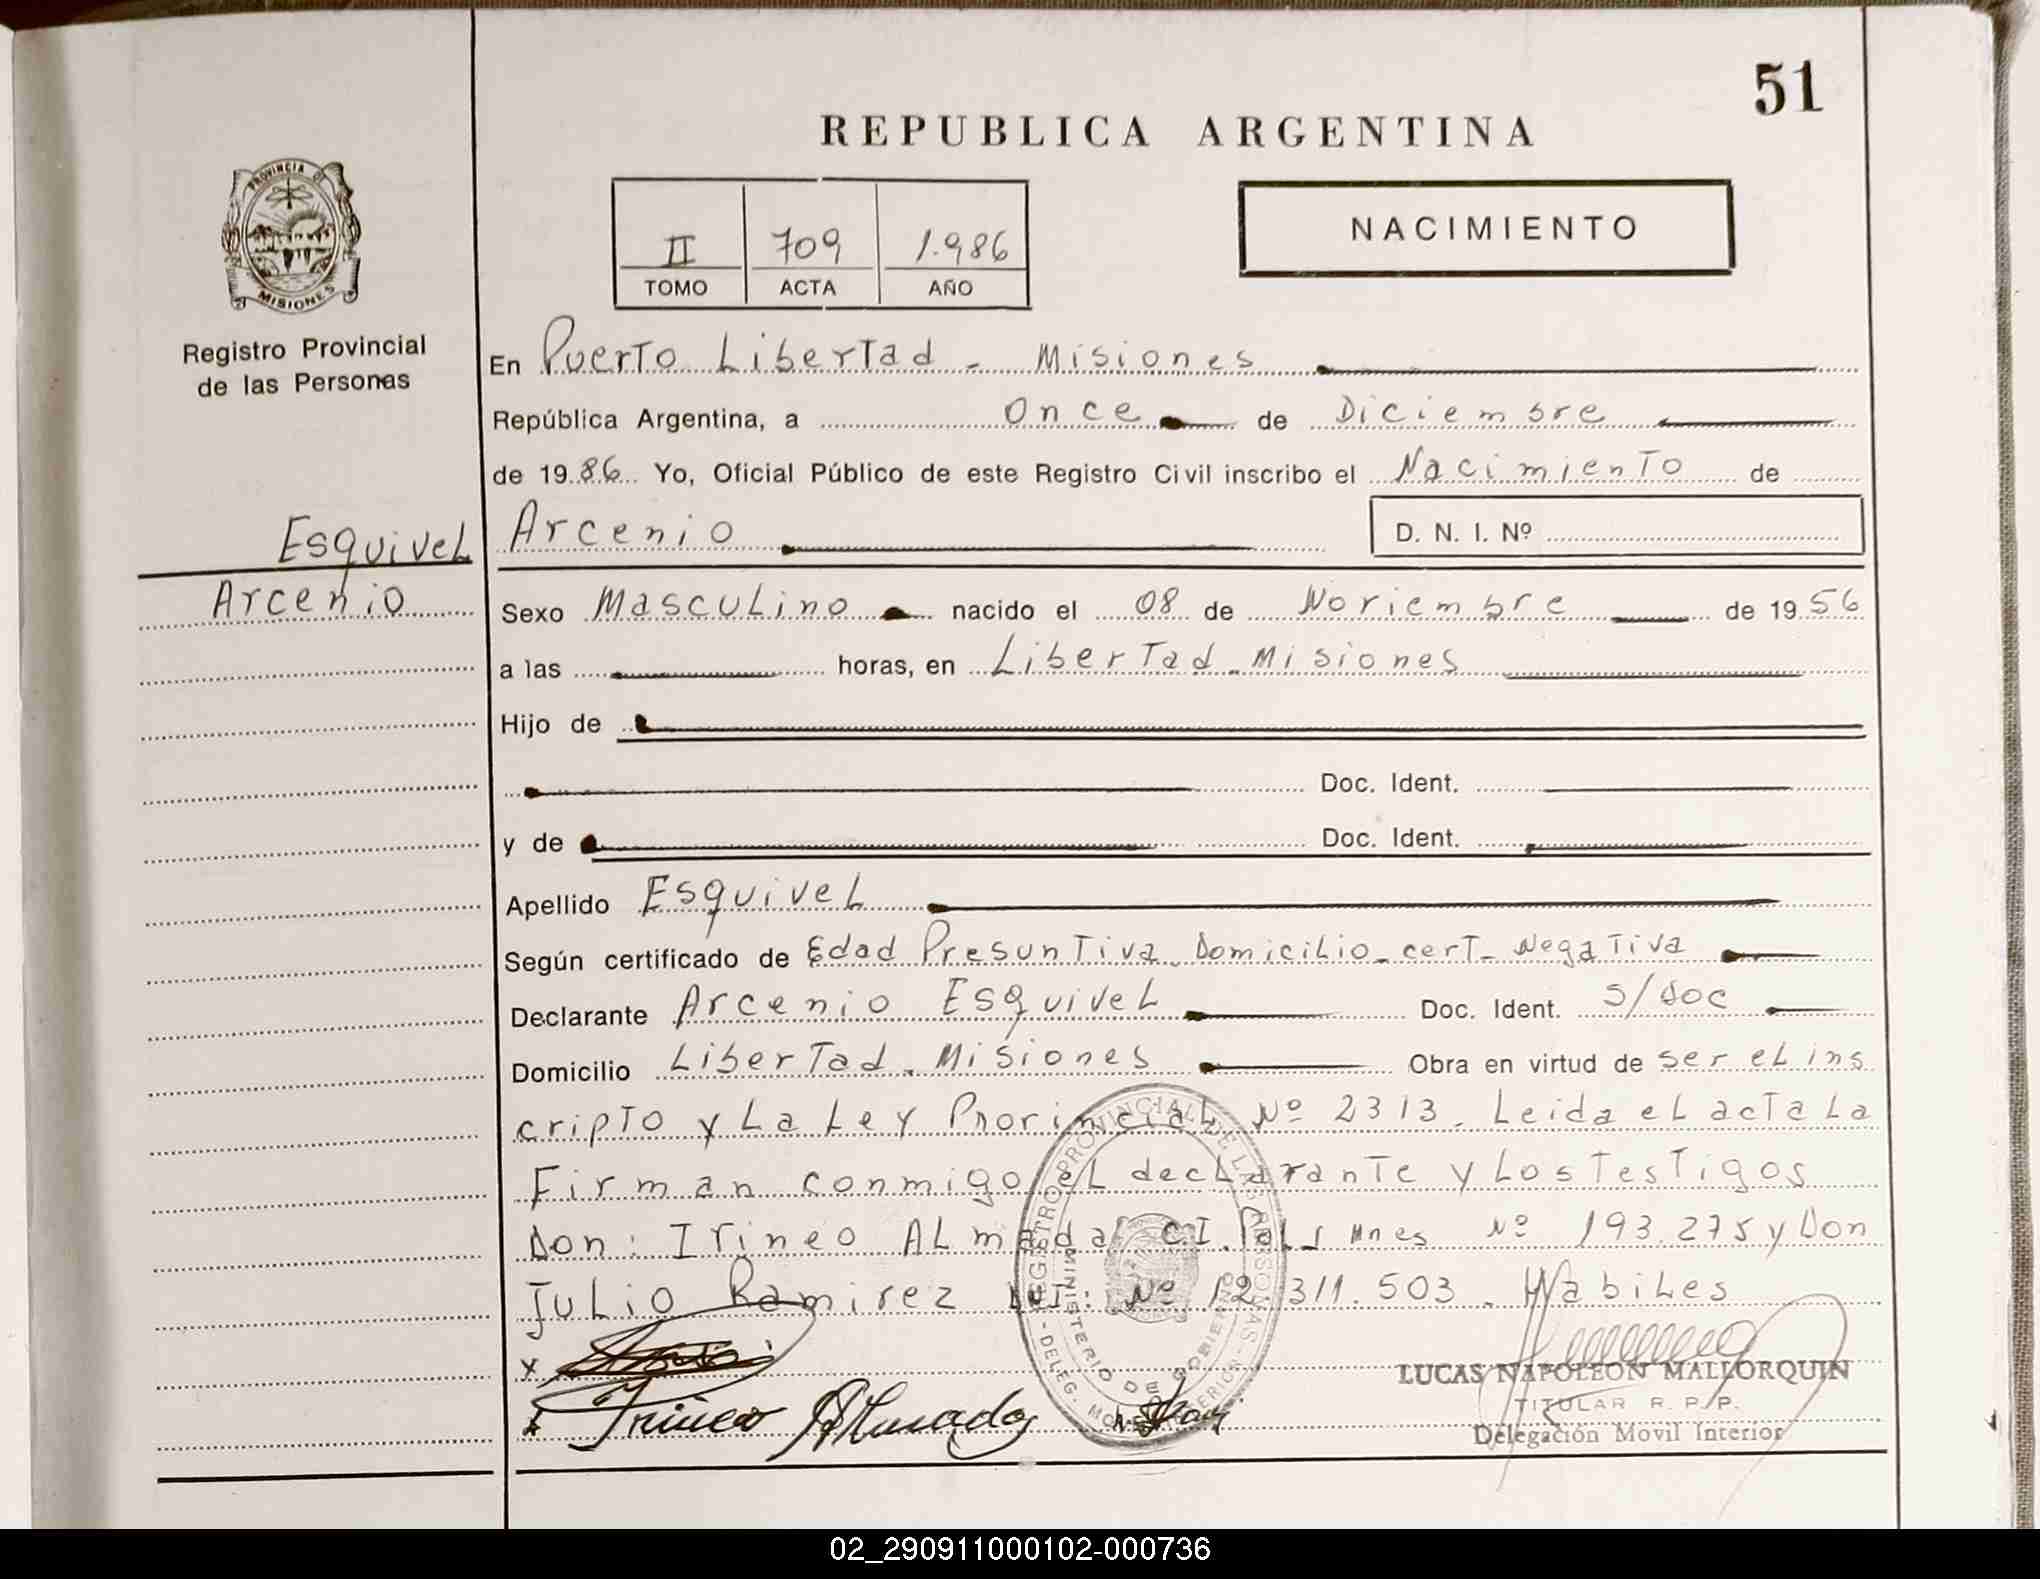 51
REPUBLICA ARGENTINA
NACIMIENTO
II 709 1.986
TOMO ACTA AÑO
PROVINCIA DE
MISIONES
Registro Provincial
de las Personas
En Puerto Libertad - Misiones
República Argentina, a Once de Diciembre
de 1986 Yo, Oficial Público de este Registro Civil inscribo el Nacimiento de
Esquivel
Arcenio
Arcenio D. N. I. Nº
Sexo Masculino nacido el 08 de Noviembre de 1956
a las horas, en Libertad - Misiones
Hijo de
Doc. Ident.
y de Doc. Ident.
Apellido Esquivel
Según certificado de Edad Presuntiva - Domicilio - cert - Negativa
Declarante Arcenio Esquivel Doc. Ident. s/doc
Domicilio Libertad - Misiones Obra en virtud de ser el ins
cripto y La Ley Provincial Nº 2313. Leida el acta La
Firman conmigo el declarante y Los Testigos
Don: Irineo Almada C.I. Pol. Mnes Nº 193.275 y Don
Julio Ramirez Nº 12.311.503. Habiles
REGISTRO PROVINCIAL DE LAS PERSONAS
MINISTERIO DE GOBIERNO
x
x Irineo Almada
LUCAS NAPOLEON MALLORQUIN
TITULAR R. P. P.
Delegación Movil Interior
02_290911000102-000736